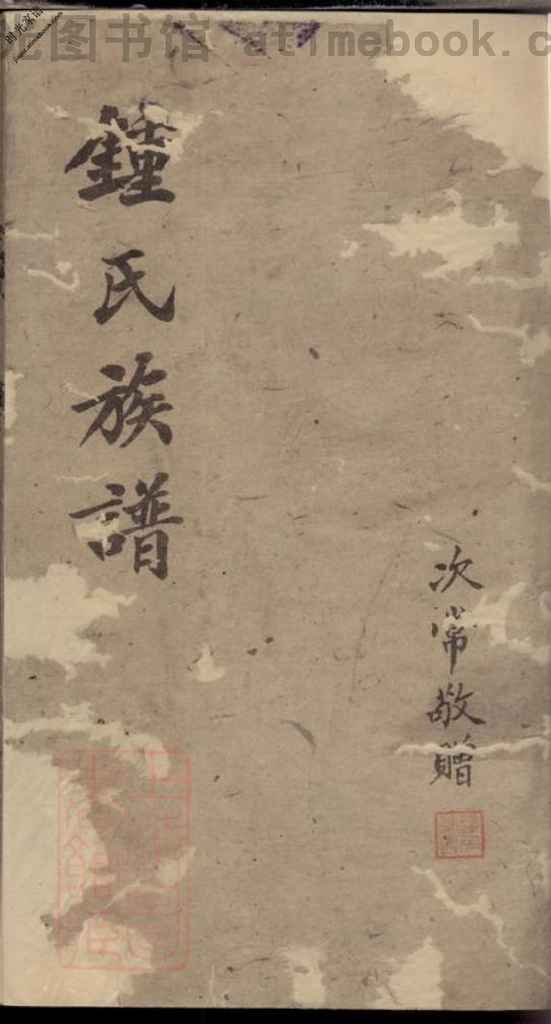 光图书馆 atimebook.c
鐘氏族譜
次常敬贈